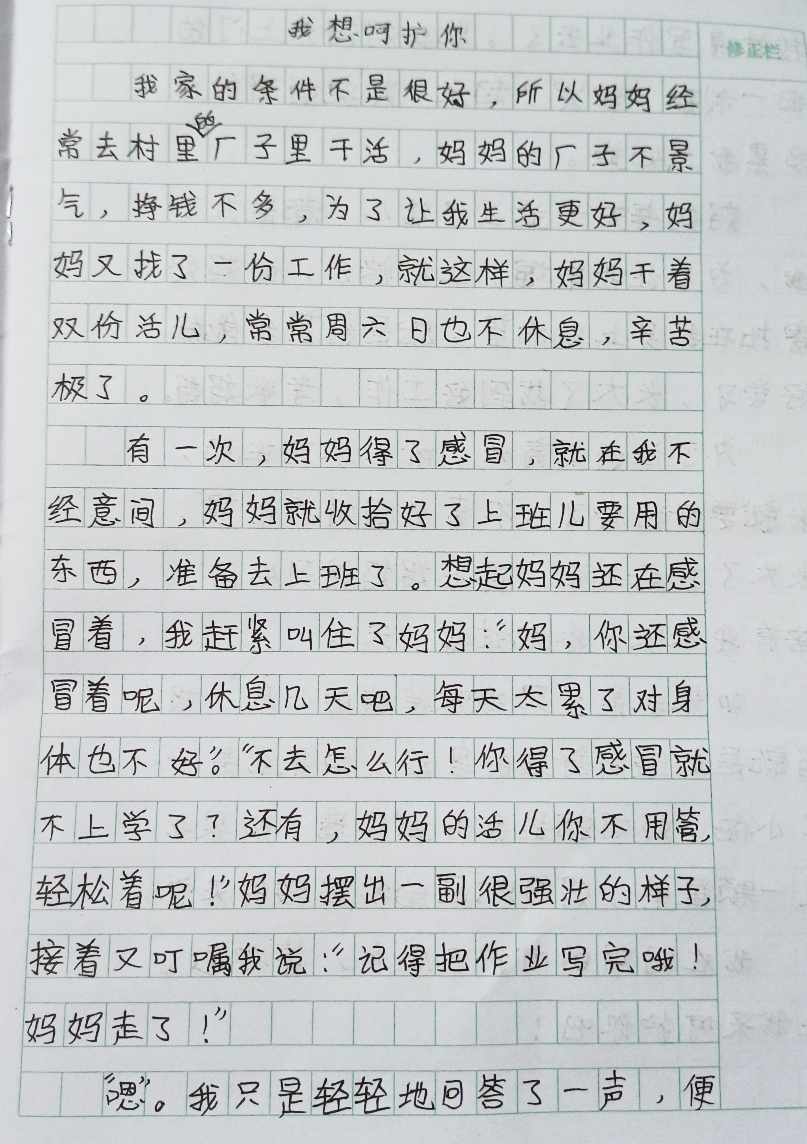 我想呵护你
修正栏
我家的条件不是很好，所以妈妈经
常去村里的厂子里干活，妈妈的厂子不景
气，挣钱不多，为了让我生活更好，妈
妈又找了一份工作，就这样，妈妈干着
双份活儿，常常周六日也不休息，辛苦
极了。
有一次，妈妈得了感冒，就在我不
经意间，妈妈就收拾好了上班儿要用的
东西，准备去上班了。想起妈妈还在感
冒着，我赶紧叫住了妈妈：“妈，你还感
冒着呢，休息几天吧，每天太累了对身
体也不好”。“不去怎么行！你得了感冒就
不上学了？还有，妈妈的活儿你不用管，
轻松着呢！”妈妈摆出一副很强壮的样子，
接着又叮嘱我说：“记得把作业写完哦！
妈妈走了！”
“嗯”。我只是轻轻地回答了一声，便